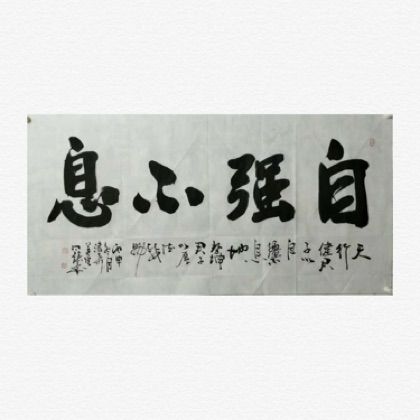 自强不息
天行健君子以自强不息地势坤君子以厚德载物
丙申